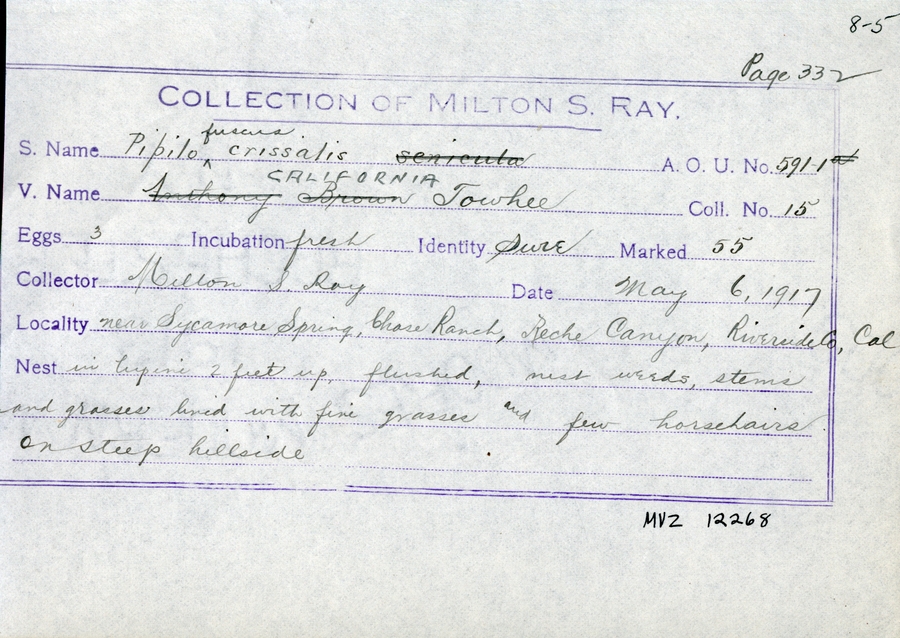 8-5
Page 332
COLLECTION OF MILTON S. RAY.
fuscus
S. Name Pipilo ^ crissalis senicula A. O. U. No. 591-1
CALIFORNIA
V. Name Anthony Brown Towhee Coll. No. 15
Eggs 3 Incubation fresh Identity sure Marked 55
Collector Milton S. Ray Date May 6, 1917
Locality near Sycamore Spring, Chase Ranch, Reche Canyon, Riverside Co, Cal
Nest in 2 feet up, flushed, nest weeds, stems
and grasses lined with fine grasses and few horsehairs
on steep hillside
MVZ 12268